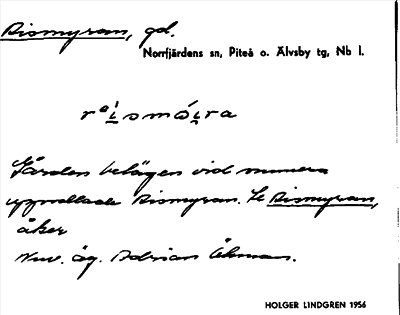 Bismyran, gd.
Norrfjärdens sn, Piteå o. Älvsby tg, Nb l.
Gården belägen vid numera
uppodlade Bismyran. Se Bismyran,
åker
Nuv. äg. Adrian Öhman.
HOLGER LINDGREN 1956